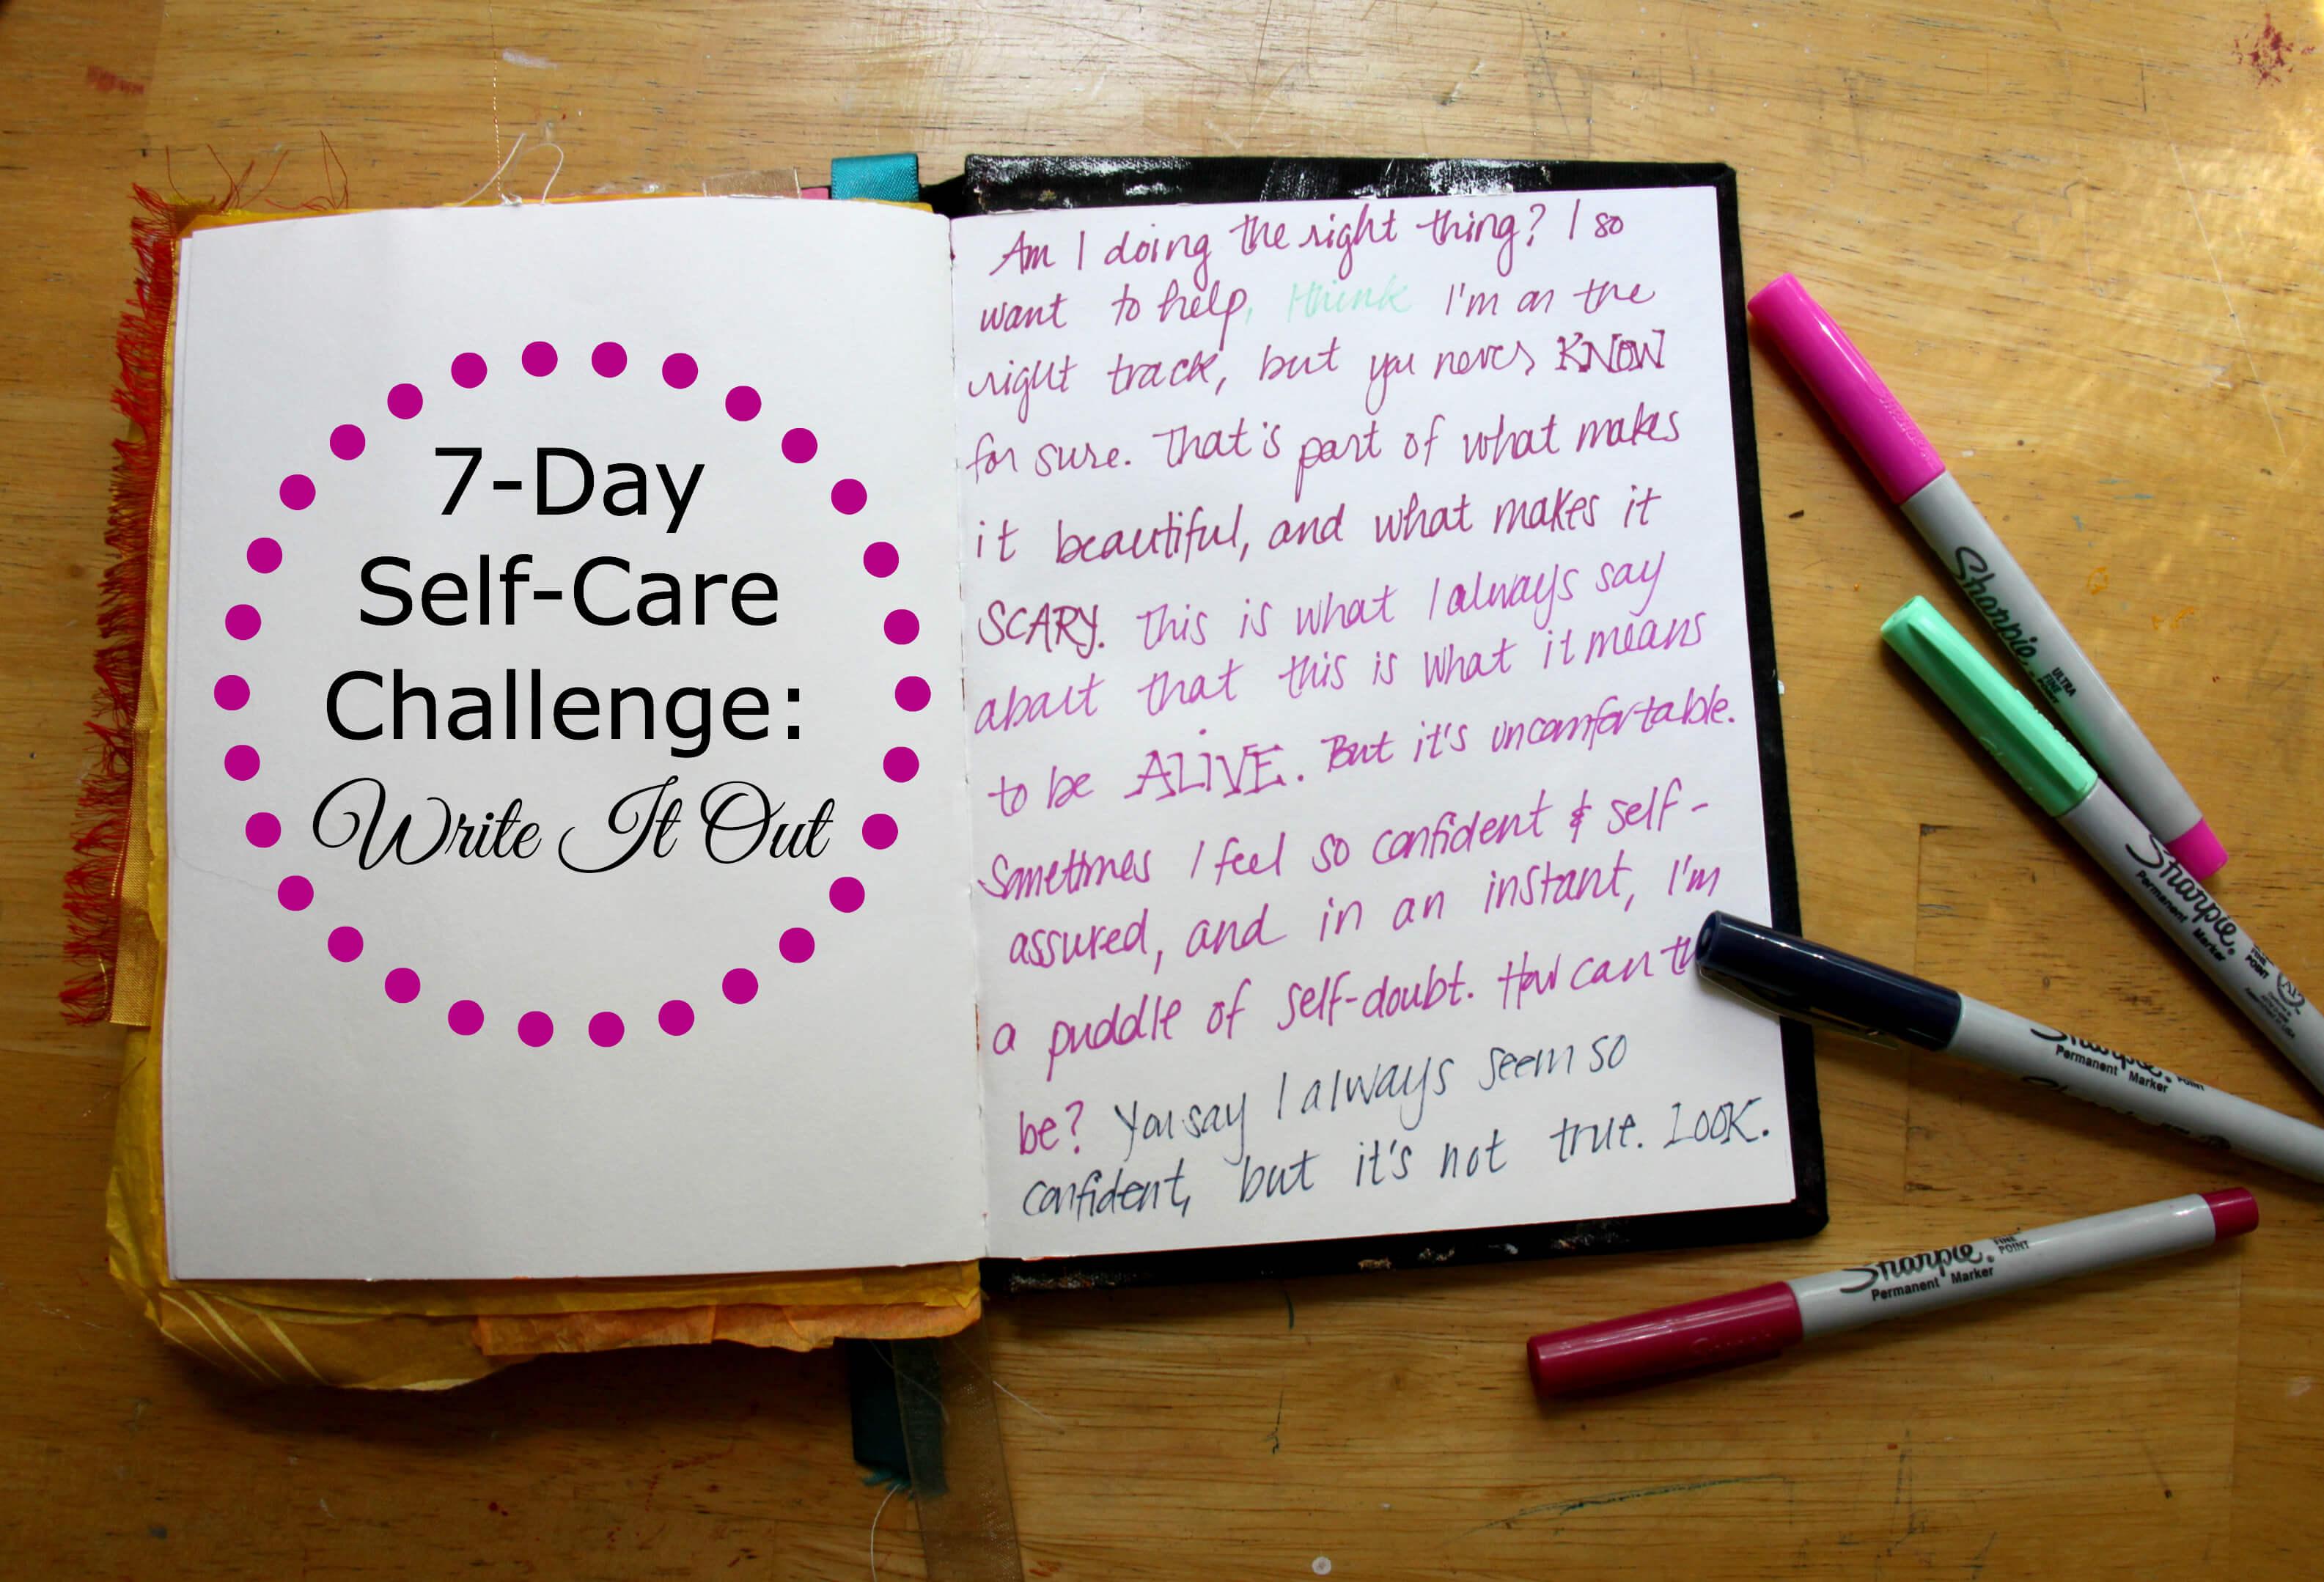 7-Day
Self-Care
Challenge:
Write It Out
Am I doing the right thing? I so
want to help, think I'm on the
right track, but you never KNOW
for sure. That's part of what makes
it beautiful, and what makes it
SCARY. This is what I always say
about that this is what it means
to be ALIVE. But it's uncomfortable.
Sometimes I feel so confident & self-
assured, and in an instant, I'm
a puddle of self-doubt. How can
be? You say I always seem so
confident, but it's not true. LOOK.
Sharpie.
ULTRA
FINE
Sharpie.
Permanent Marker
FINE
POINT
Sharpie.
Permanent Marker
POINT
Sharpie.
Permanent Marker
FINE
POINT